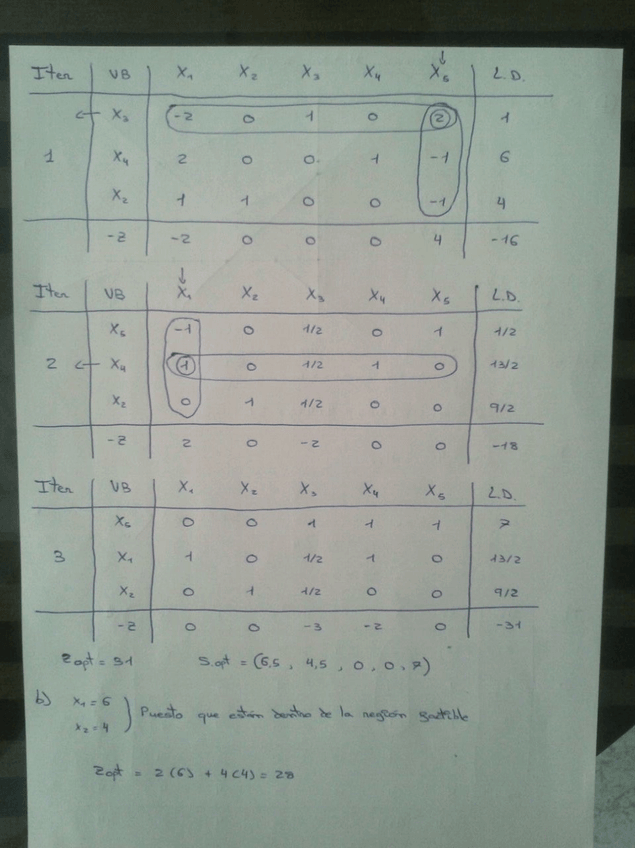 Iter VB X₁ X₂ X₃ X₄ X₅ L.D.
X₃ -2 0 1 0 2 1
1 X₄ 2 0 0 1 -1 6
X₂ 1 1 0 0 -1 4
-Z -2 0 0 0 4 -16
Iter VB X₁ X₂ X₃ X₄ X₅ L.D.
X₅ -1 0 1/2 0 1 1/2
2 X₄ 1 0 1/2 1 0 13/2
X₂ 0 1 1/2 0 0 9/2
-Z 2 0 -2 0 0 -18
Iter VB X₁ X₂ X₃ X₄ X₅ L.D.
X₅ 0 0 1 1 1 7
3 X₁ 1 0 1/2 1 0 13/2
X₂ 0 1 1/2 0 0 9/2
-Z 0 0 -3 -2 0 -31
Zopt = 31 S.opt = (6,5 , 4,5 , 0 , 0 , 7)
b) X₁ = 6
X₂ = 4 } Puesto que están dentro de la región factible
Zopt = 2(6) + 4(4) = 28